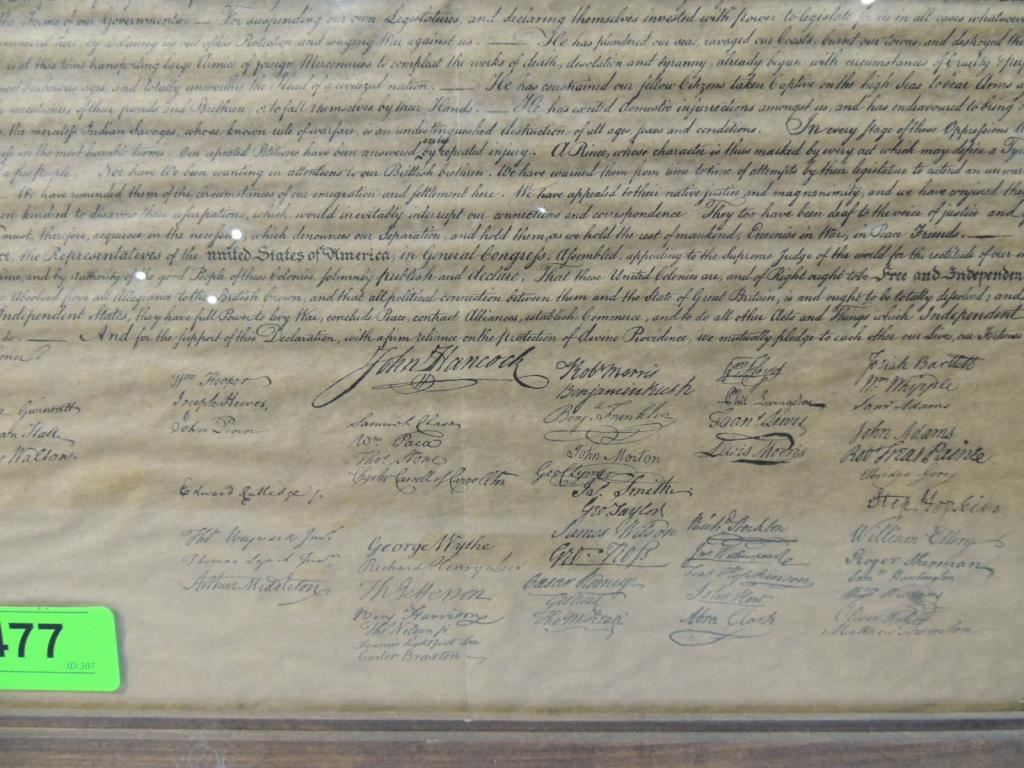 the Forms of our Governments: — For suspending our own Legislatures, and declaring themselves invested with power to legislate for us in all cases whatsoever
by declaring us out of his Protection and waging War against us. — He has plundered our seas, ravaged our Coasts, burnt our towns, and destroyed the
is at this time transporting large Armies of foreign Mercenaries to compleat the works of death, desolation and tyranny, already begun with circumstances of Cruelty &
most barbarous ages, and totally unworthy the Head of a civilized nation. — He has constrained our fellow Citizens taken Captive on the high Seas to bear Arms
executioners of their friends and Brethren, or to fall themselves by their Hands. — He has excited domestic insurrections amongst us, and has endeavoured to bring
the merciless Indian Savages, whose known rule of warfare, is an undistinguished destruction of all ages, sexes and conditions. In every stage of these Oppressions
in the most humble terms: Our repeated Petitions have been answered only by repeated injury. A Prince, whose character is thus marked by every act which may define a
a free people. Nor have We been wanting in attentions to our Brittish brethren. We have warned them from time to time of attempts by their legislature to extend an
We have reminded them of the circumstances of our emigration and settlement here. We have appealed to their native justice and magnanimity, and we have conjured
kindred to disavow these usurpations, which would inevitably interrupt our connections and correspondence They too have been deaf to the voice of justice and
must, therefore, acquiesce in the necessity, which denounces our Separation, and hold them, as we hold the rest of mankind, Enemies in War, in Peace Friends. —
the Representatives of the united States of America, in General Congress, Assembled, appealing to the Supreme Judge of the world for the rectitude of our
and by Authority of the good People of these Colonies, solemnly publish and declare, That these United Colonies are, and of Right ought to be Free and Independen
Absolved from all Allegiance to the British Crown, and that all political connection between them and the State of Great Britain, is and ought to be totally dissolved; and
Independent States, they have full Power to levy War, conclude Peace, contract Alliances, establish Commerce, and to do all other Acts and Things which Independent
do. — And for the support of this Declaration, with a firm reliance on the protection of divine Providence, we mutually pledge to each other our Lives, our Fortunes
onor
John Hancock
Gwinnett
Hall
Walton.
Wm Hooper
Joseph Hewes,
John Penn
Edward Rutledge
Thos Heyward Junr
Thomas Lynch Junr
Arthur Middleton
Samuel Chase
Wm Paca
Thos Stone
Charles Carroll of Carrollton
George Wythe
Richard Henry Lee
Th Jefferson
Benj Harrison
Thos Nelson jr
Francis Lightfoot Lee
Carter Braxton
Robt Morris
Benjamin Rush
Benj Franklin
John Morton
Geo Clymer
Jas Smith
Geo. Taylor
James Wilson
Geo. Ross
Caesar Rodney
Geo Read
Tho M:Kean
Wm Floyd
Phil. Livingston
Frans Lewis
Lewis Morris
Richd Stockton
Jno Witherspoon
Fras Hopkinson
John Hart
Abra Clark
Josiah Bartlett
Wm Whipple
Saml Adams
John Adams
Robt Treat Paine
Elbridge Gerry
Step. Hopkins
William Ellery
Roger Sherman
Saml Huntington
Wm Williams
Oliver Wolcott
Matthew Thornton
477
ID:307